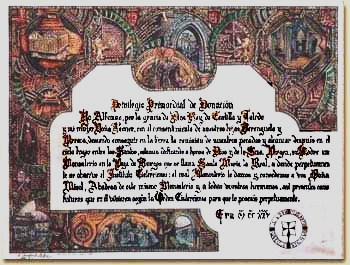 Privilegio Primordial de Donación
Yo Alfonso, por la gracia de Dios Rey de Castilla y Toledo
y mi mujer Doña Leonor, con el consentimiento de nuestras Berenguela y
Urraca, deseando conseguir en la tierra la remisión de nuestros pecados y alcanzar después en el
cielo lugar entre los Santos, a honra de Dios y de la Virgen,
Monasterio en la Vega de Burgos que se llama Santa María la Real, a donde perpetuamente
se observe el Instituto Cisterciense; el cual Monasterio le damos y concedemos a vos Doña
Misol, Abadesa de este mismo Monasterio y a todas vuestras hermanas, así presentes como
futuras que en él vivieren según la Orden Cisterciense para que lo poseáis perpetuamente.
Era